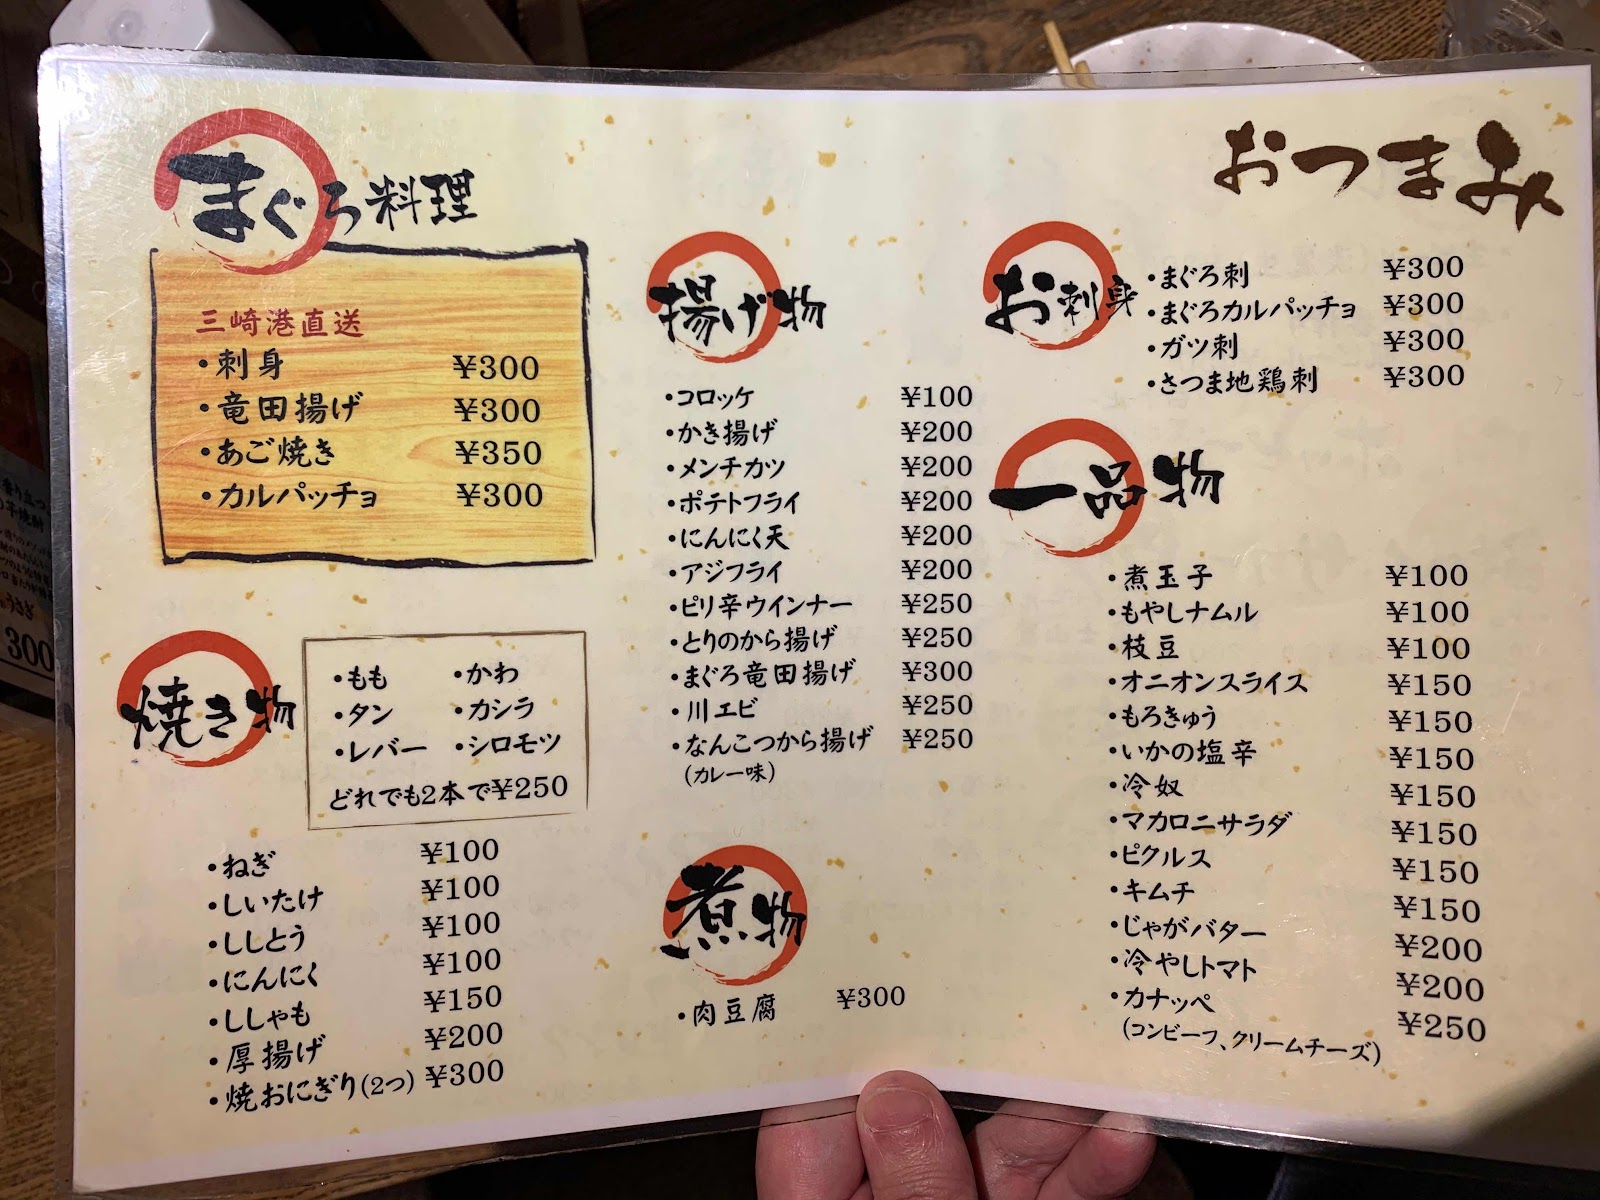 おつまみ
まぐろ料理
三崎港直送
・刺身 ¥300
・竜田揚げ ¥300
・あご焼き ¥350
・カルパッチョ ¥300
焼き物
・もも ・かわ
・タン ・カシラ
・レバー ・シロモツ
どれでも2本で¥250
・ねぎ ¥100
・しいたけ ¥100
・ししとう ¥100
・にんにく ¥100
・ししゃも ¥150
・厚揚げ ¥200
・焼おにぎり(2つ) ¥300
揚げ物
・コロッケ ¥100
・かき揚げ ¥200
・メンチカツ ¥200
・ポテトフライ ¥200
・にんにく天 ¥200
・アジフライ ¥200
・ピリ辛ウインナー ¥250
・とりのから揚げ ¥250
・まぐろ竜田揚げ ¥300
・川エビ ¥250
・なんこつから揚げ ¥250
(カレー味)
煮物
・肉豆腐 ¥300
お刺身
・まぐろ刺 ¥300
・まぐろカルパッチョ ¥300
・ガツ刺 ¥300
・さつま地鶏刺 ¥300
一品物
・煮玉子 ¥100
・もやしナムル ¥100
・枝豆 ¥100
・オニオンスライス ¥150
・もろきゅう ¥150
・いかの塩辛 ¥150
・冷奴 ¥150
・マカロニサラダ ¥150
・ピクルス ¥150
・キムチ ¥150
・じゃがバター ¥200
・冷やしトマト ¥200
・カナッペ ¥250
(コンビーフ、クリームチーズ)
うさぎ
300